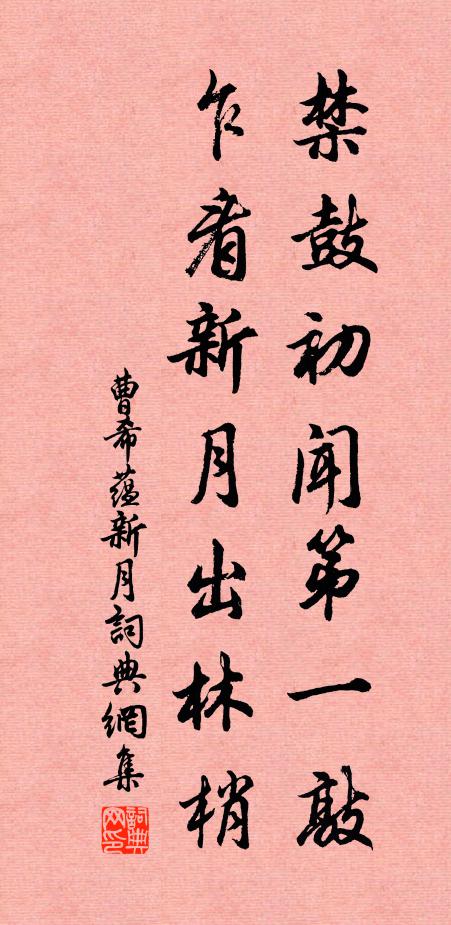 禁鼓初闻第一敲
乍看新月出林梢
曹希蕴新月词典網集
詞典网印